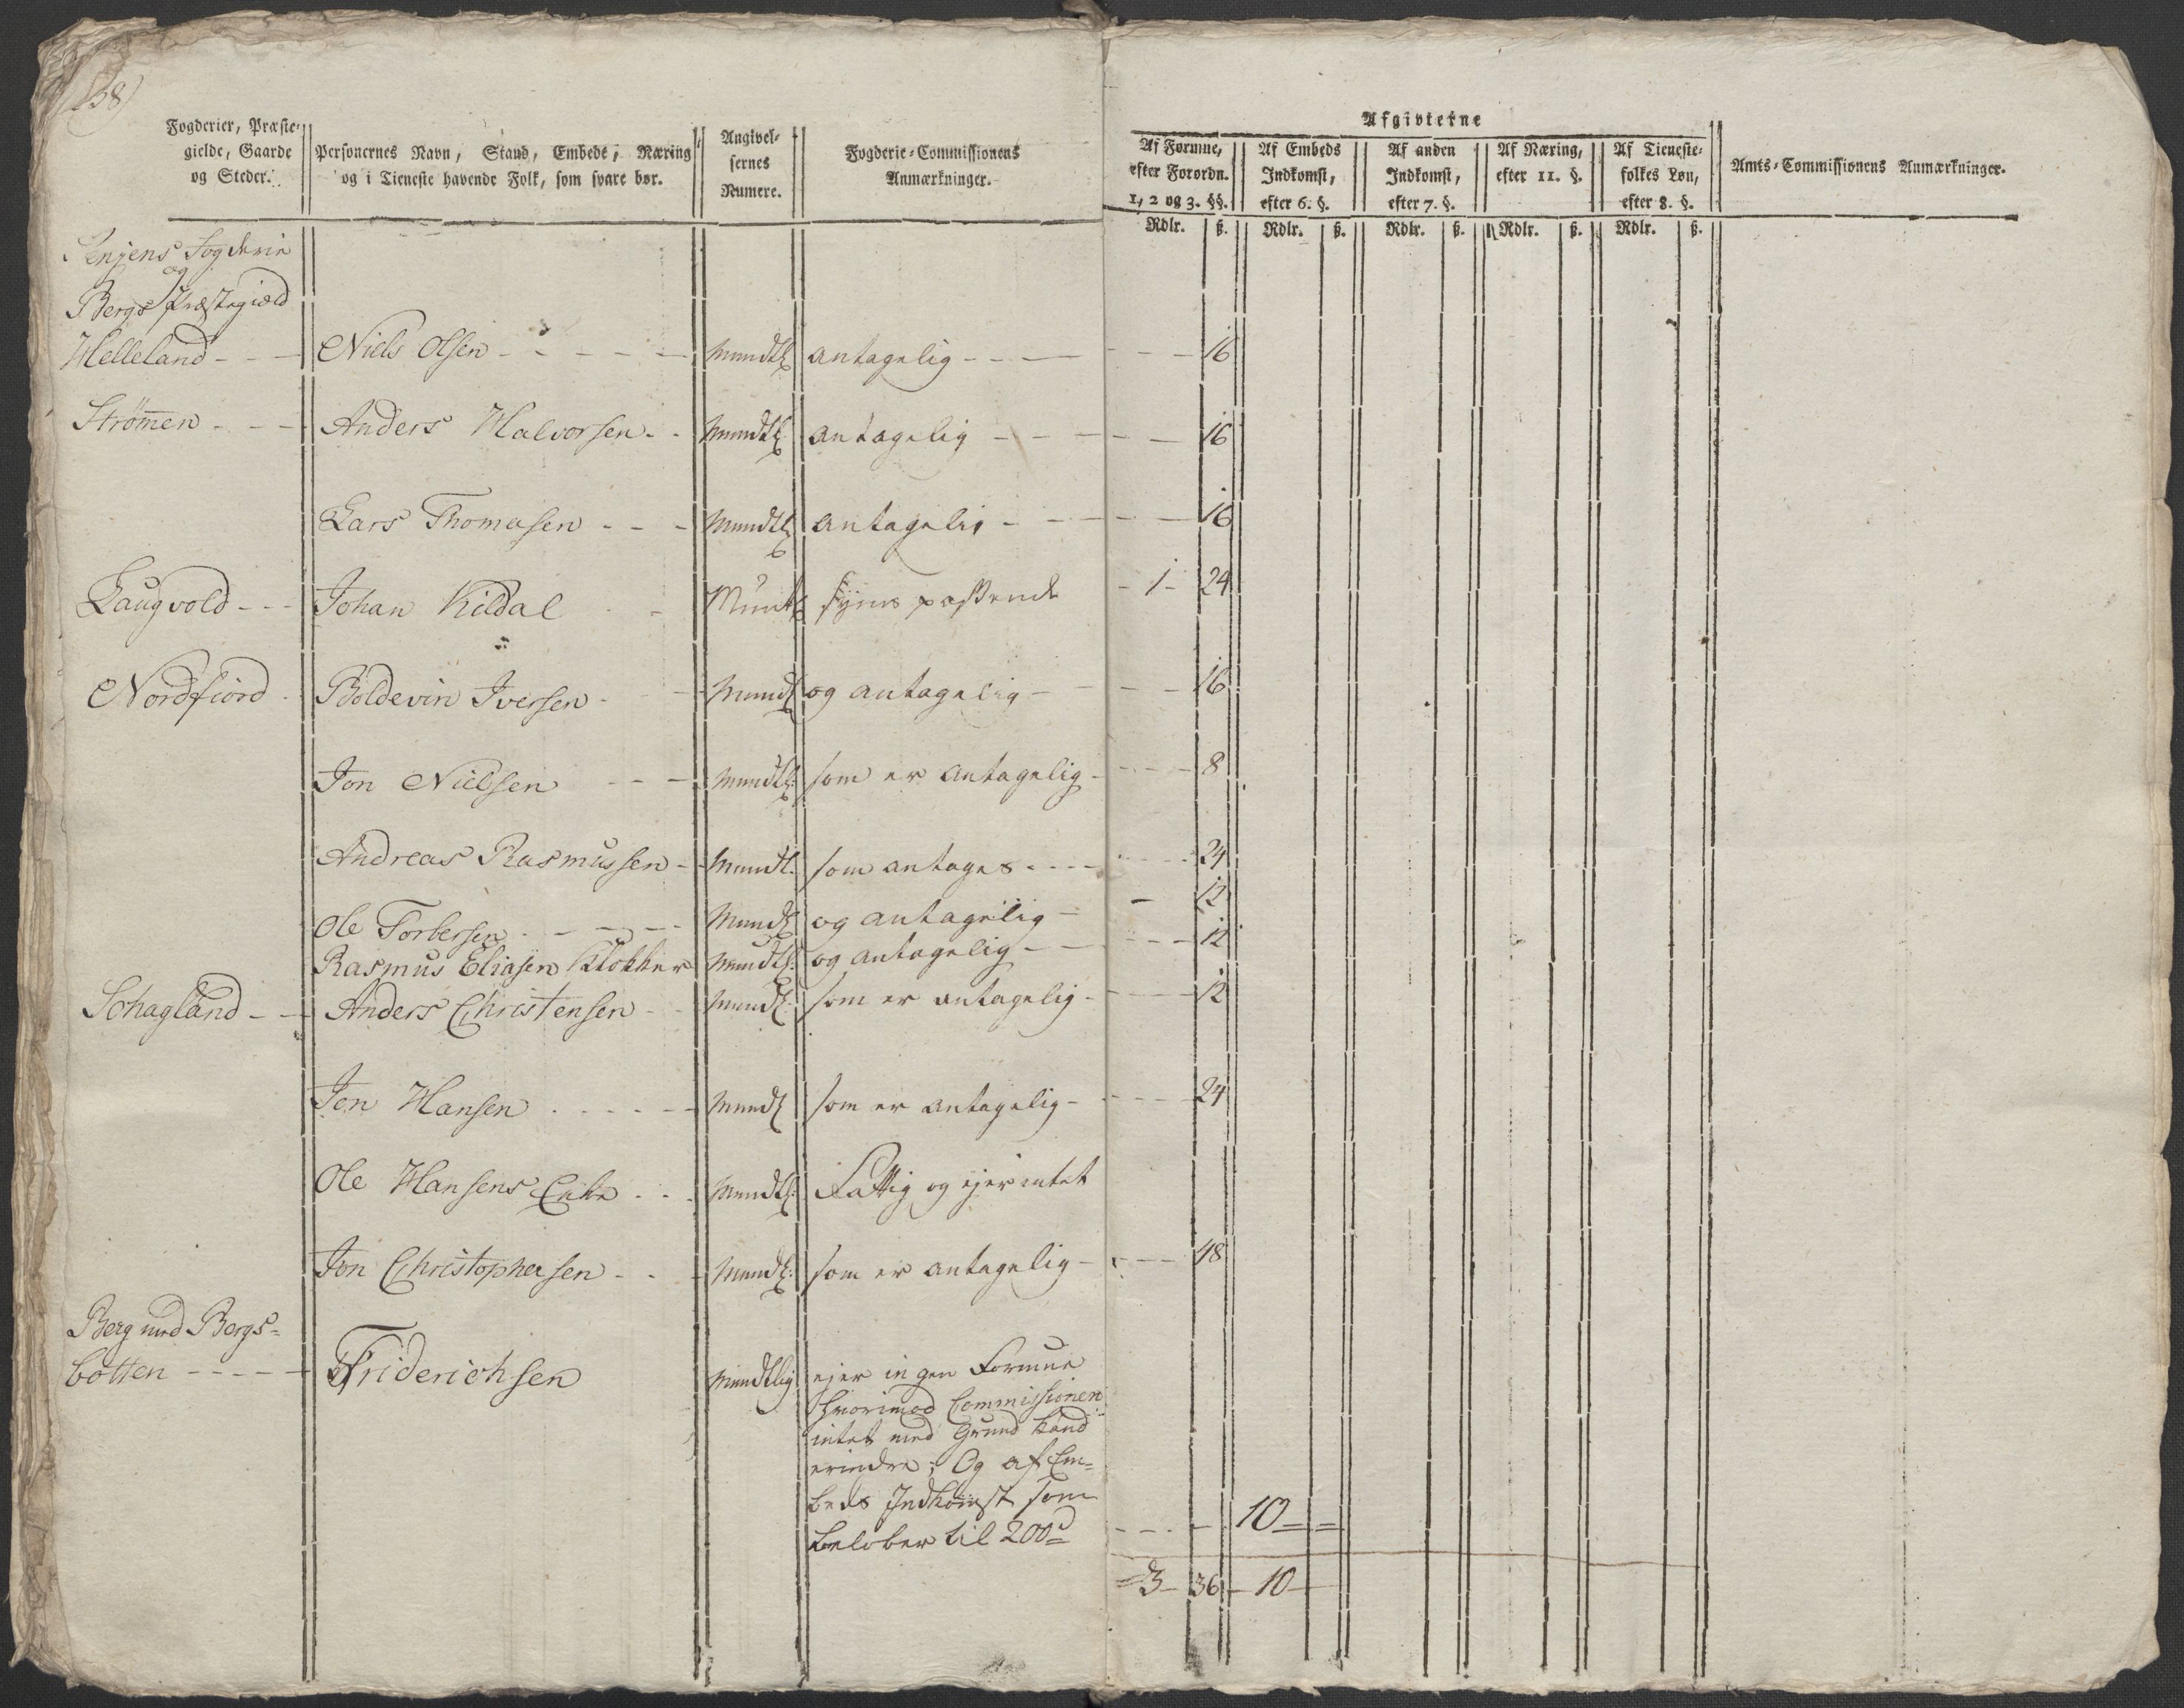 Fogderier, Præste-
gielde, Gaarde
og Steder.
Personernes Navn, Stand, Embede, Næring
og i Tieneste havende Folk, som svare bør.
Angivel-
sernes
Numere.
Fogderie-Commissionens
Anmærkninger.
Afgivterne
Af Formue,
efter Forordn.
1, 2 og 3. §§.
Af Embeds
Indkomst,
efter 6. §.
Af anden
Indkomst,
efter 7. §.
Af Næring,
efter 11. §.
Af Tieneste-
folkes Løn,
efter 8. §.
Amts-Commissionens Anmærkninger.
Rdlr. ß. Rdlr. ß. Rdlr. ß. Rdlr. ß. Rdlr. ß.
Senjens Fogderie
og
Bergs Præstegield
Helleland - - - Niels Olsen - - - - - Mundtl antagelig - - - - - 16
Strømen - - - Anders Halvorsen - - Mundtl antagelig - - - - - 16
Lars Thomasen - - - Mundtl antagelig - - - - 16
Laugvold - - - Johan Kildal - - Mundtl synes passende - 1 - 24
Nordfiord - Boldevin Iversen - - Mundtl og antagelig - - - - 16
Jon Nielsen - - - Mundtl: som er antagelig - - - - 8
Andreas Rasmussen - Mundtl. som antages - - - - - - 24
Ole Torbersen - - - - - Mundtl og antagelig - - 12
Rasmus Eliasen Klokker Mundtl: og antagelig - - - - - 12
Schagland - - Anders Christensen - - Mundtl: som er antagelig - - - - 12
Jon Hansen - - - - - Mundtl som er antagelig - - - - 24
Ole Hansens Enke - - - Mundtl: Fattig og ejer intet
Jon Christophersen - - - Mundtl: som er antagelig - - - - 48
Berg med Bergs-
botten - - - - - Friderichsen Mundtlig ejer ingen Formue
hvorimod Commissionen
intet med Grund kand
erindre; Og af Em-
beds Indkomst som
beløber til 200d - - - - 10 - -
3 - 36 - 10 -